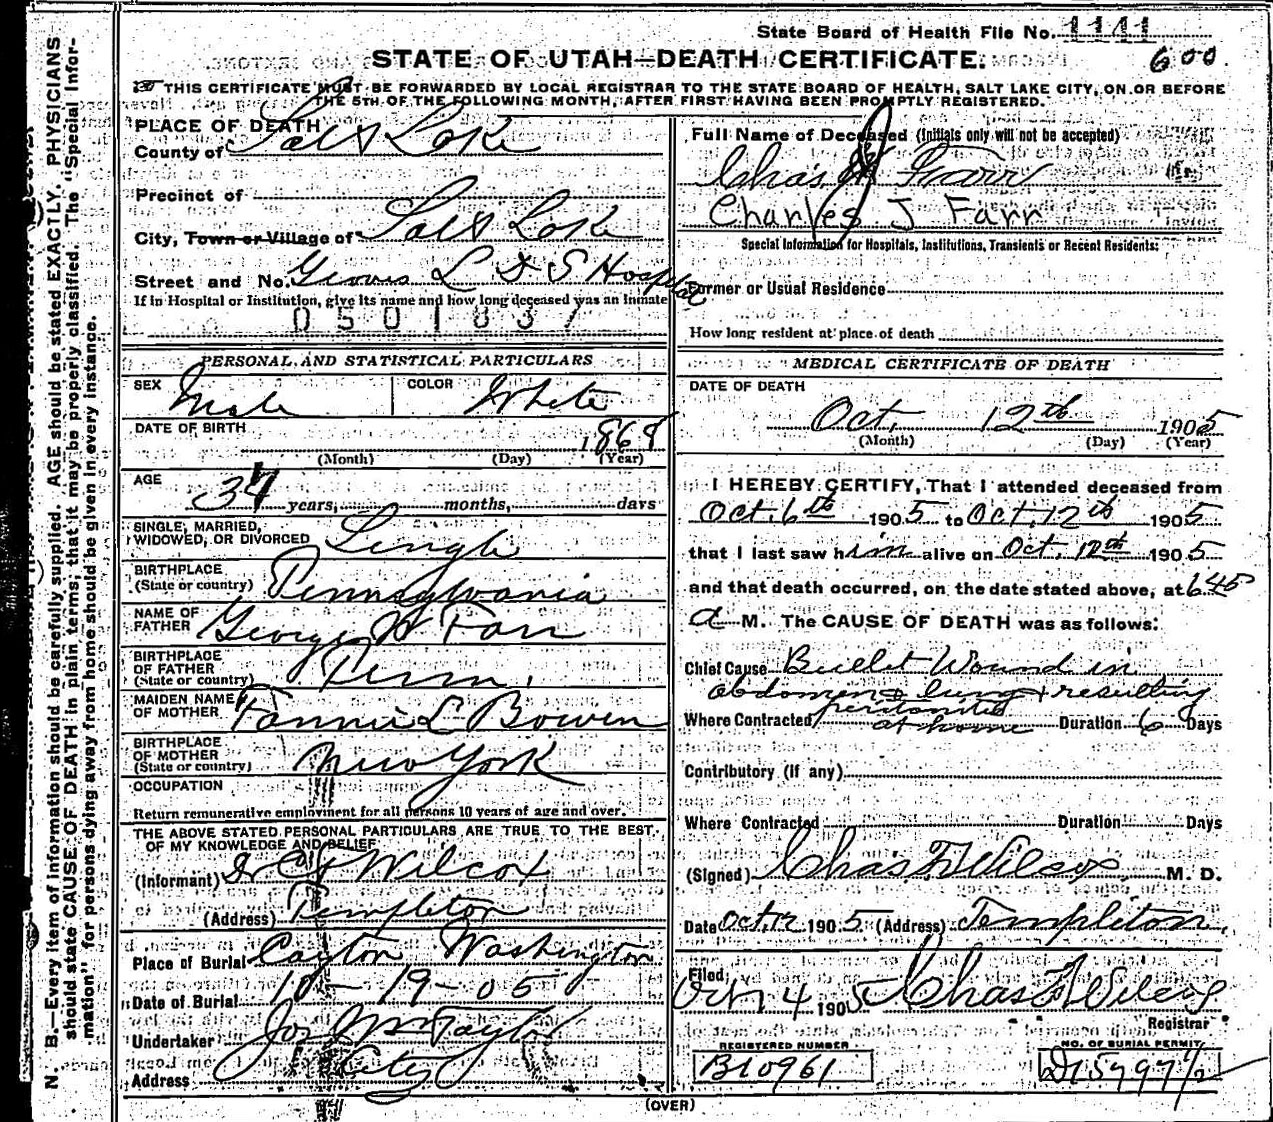 State Board of Health File No. 1141
600
STATE OF UTAH—DEATH CERTIFICATE.
THIS CERTIFICATE MUST BE FORWARDED BY LOCAL REGISTRAR TO THE STATE BOARD OF HEALTH, SALT LAKE CITY, ON OR BEFORE
THE 5TH OF THE FOLLOWING MONTH, AFTER FIRST HAVING BEEN PROMPTLY REGISTERED.
N. B.—Every item of information should be carefully supplied. AGE should be stated EXACTLY. PHYSICIANS
should state CAUSE OF DEATH in plain terms, that it may be properly classified. The "Special Infor-
mation" for persons dying away from home should be given in every instance.
PLACE OF DEATH
County of Salt Lake
Precinct of
City, Town or Village of Salt Lake
Street and No. Groves L D S Hospital
If in Hospital or Institution, give its name and how long deceased was an inmate
0501837
PERSONAL AND STATISTICAL PARTICULARS
SEX Male COLOR White
DATE OF BIRTH 1868
(Month) (Day) (Year)
AGE 37 years, months, days
SINGLE, MARRIED,
WIDOWED, OR DIVORCED Single
BIRTHPLACE
(State or country) Pennsylvania
NAME OF
FATHER George W Farr
BIRTHPLACE
OF FATHER
(State or country) Penn.
MAIDEN NAME
OF MOTHER Fannie L Bowen
BIRTHPLACE
OF MOTHER
(State or country) New York
OCCUPATION
Return remunerative employment for all persons 10 years of age and over.
THE ABOVE STATED PERSONAL PARTICULARS ARE TRUE TO THE BEST
OF MY KNOWLEDGE AND BELIEF
(Informant) Dr C F Wilcox
(Address) Templeton
Place of Burial Dayton Washington
Date of Burial 10-19-05
Undertaker Jos Wm Taylor
Address City
Full Name of Deceased (Initials only will not be accepted)
Chas. J Farr
Charles J Farr
Special Information for Hospitals, Institutions, Transients or Recent Residents:
Former or Usual Residence
How long resident at place of death
MEDICAL CERTIFICATE OF DEATH
DATE OF DEATH
Oct. 12th 1905
(Month) (Day) (Year)
I HEREBY CERTIFY, That I attended deceased from
Oct. 6th 1905 to Oct. 12th 1905
that I last saw him alive on Oct. 12th 1905
and that death occurred, on the date stated above, at 6.45
a M. The CAUSE OF DEATH was as follows:
Chief Cause Bullet Wound in
abdomen & lung & resulting
peritonitis
Where Contracted at home Duration 6 Days
Contributory (if any)
Where Contracted Duration Days
(Signed) Chas F Wilcox M. D.
Date Oct. 12 1905 (Address) Templeton
Filed
Oct 14 1905 Chas F Wilcox
Registrar
REGISTERED NUMBER
B10961
NO. OF BURIAL PERMIT
(OVER)